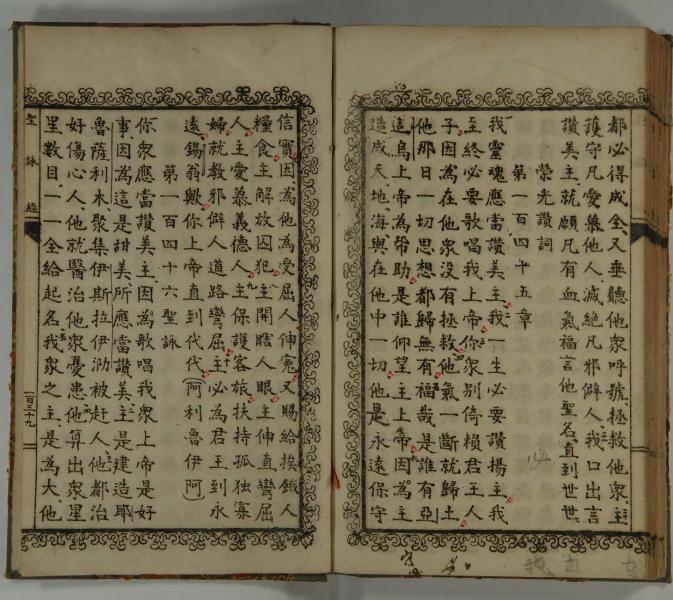 都必得成全、又垂聽他衆呼號、拯救他衆、主
護守凡愛慕他人、滅絕凡邪僻人、我口出言
讚美主、就願凡有血氣福言他聖名、直到世世、
榮光讚詞
第一百四十五章
我靈魂應當讚美主、我一生必要讚揚主、我
至終必要歌唱我上帝、你衆別倚賴君王人
子、因為在他衆沒有拯救、他氣一斷就歸土、
他那日一切思想都歸無有、福哉是誰有亞
適烏上帝為幫助、是誰仰望主上帝、因為主
造成天地、海與在他中一切、他是永遠保守
信實、因為他為受屈人伸冤、又賜給挨餓人
糧食、主解放囚犯、主開瞎人眼、主伸直彎屈
人、主愛慕義德人、主保護客旅、扶持孤獨寡
婦、就教邪僻人道路彎屈、主必為君王到永
遠、錫翁歟、你上帝直到代代、阿利魯伊阿
第一百四十六聖詠
你衆應當讚美主、因為歌唱我衆上帝是好
事、因為這是甜美所應當讚美、主是建造耶
魯薩利木、聚集伊斯拉伊泐被赶人、他都治
好傷心人、他就醫治他衆憂患、他算出衆星
星數目、一一全給起名、我衆之主、是為大、他
聖詠經
一百三十九